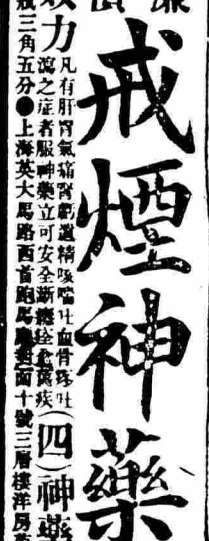 戒煙神藥
力
凡有肝胃氣痛腎虧遺精咳喘吐血骨疼吐
瀉之症者服神藥立可安全漸癮痊愈
疾
(四)神藥
三角五分●上海英大馬路西首跑馬廳對面十號三層樓洋房